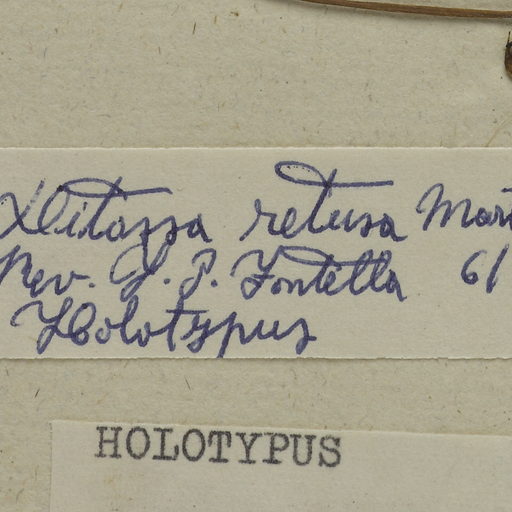 Ditassa retusa Mart
Rev. J. P. Fontella 61
Holotypus
HOLOTYPUS